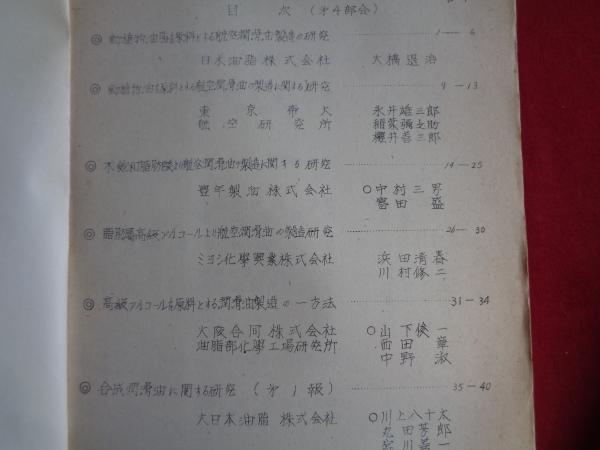 目 次 (第4部会)
◎ 動植物油脂を原料とする航空潤滑油製造の研究 ……… 1 — 6
日本油脂株式会社 大橋
◎ 動植物油を原料とする航空潤滑油の製造に関する研究 ……… 9 — 13
東京帝大 永井雄三郎
航空研究所 稲葉彌之助
櫻井善三郎
◎ 不飽和脂肪酸より航空潤滑油の製造に関する研究 ……… 14 — 25
豊年製油株式会社 ○中村三男
富田 盛
◎ 脂肪属高級アルコールより航空潤滑油の製造研究 ……… 26 — 30
ミヨシ化學興業株式会社 浜田清春
川村修二
◎ 高級アルコールを原料とする潤滑油製造の一方法 ……… 31 — 34
大阪合同株式会社 ○山下俊一
油脂部化學工場研究所 西田 肇
中野 淑
◎ 合成潤滑油に関する研究 (第1報) ……… 35 — 40
大日本油脂株式会社 ○川上八十太
丸田芳郎